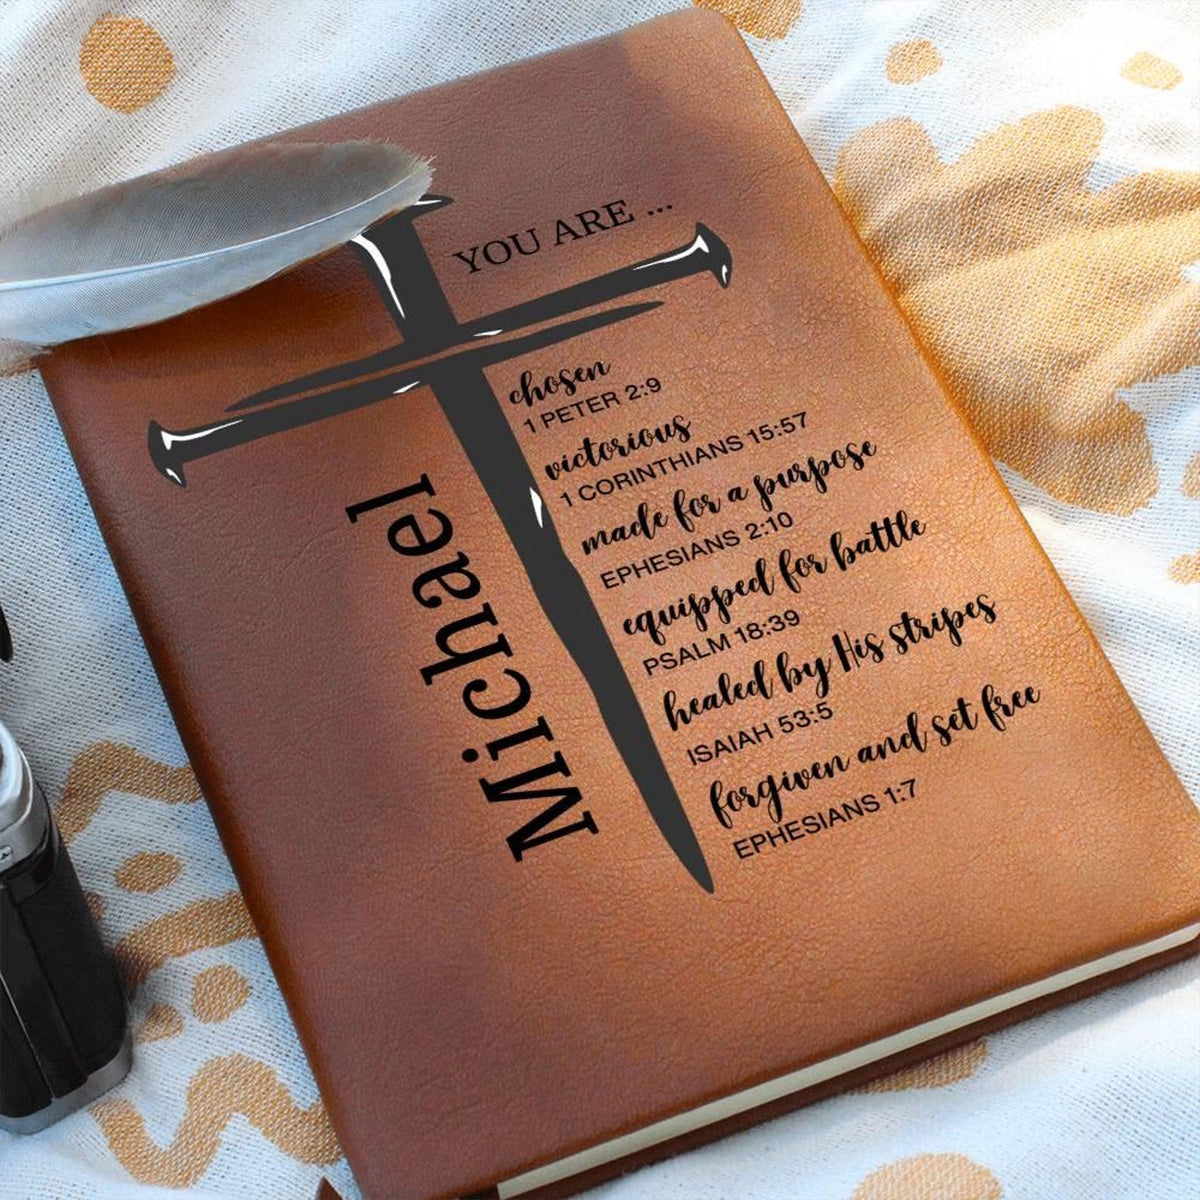 YOU ARE ...
chosen
1 PETER 2:9
victorious
1 CORINTHIANS 15:57
made for a purpose
EPHESIANS 2:10
equipped for battle
PSALM 18:39
healed by His stripes
ISAIAH 53:5
forgiven and set free
EPHESIANS 1:7
Michael